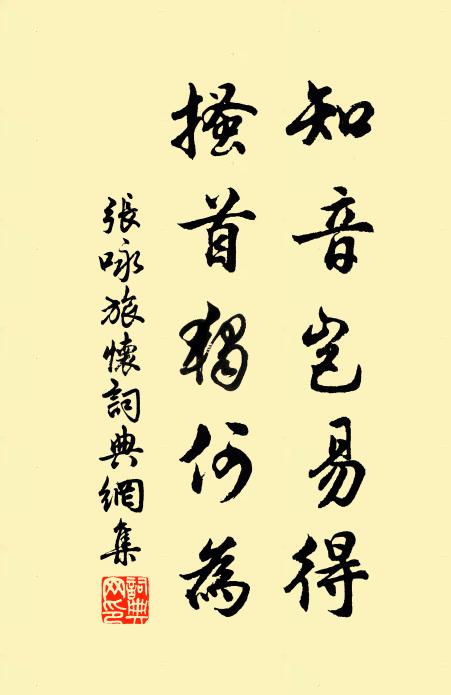 知音豈易得
搔首獨何為
張咏旅懷詞典網集
詞典